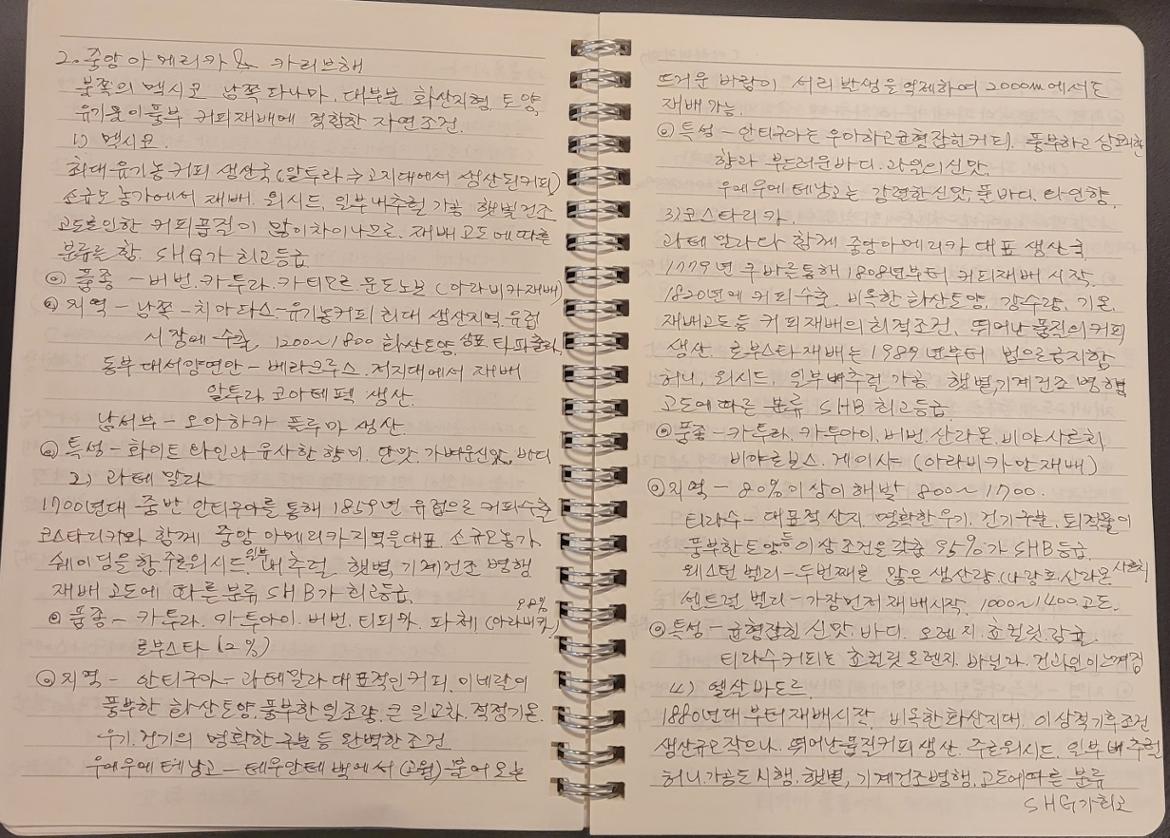 2. 중앙아메리카 & 카리브해
북쪽의 멕시코 남쪽 파나마. 대부분 화산지형 토양,
유기물이 풍부 커피재배에 적합한 자연조건.
1) 멕시코.
최대 유기농 커피 생산국 (알투라 → 고지대에서 생산된 커피)
소규모 농가에서 재배. 워시드, 일부 내추럴 가공 햇빛건조
고도로 인한 커피품질이 많이 차이나므로. 재배고도에 따른
분류를 함. SHG가 최고등급
◎ 품종 - 버번. 카투라. 카티모르 문도노보 (아라비카재배)
◎ 지역 - 남쪽 - 치아파스 - 유기농커피 최대 생산지역. 유럽
시장에 수출, 1200~1800 화산토양, 상표 타파출라.
동부 대서양연안 - 베라크루스. 저지대에서 재배
알투라 코아테펙 생산.
남서부 - 오아하카 플루마 생산.
◎ 특성 - 화이트 와인과 유사한 향미. 단맛. 가벼운신맛. 바디
2) 과테말라
1700년대 중반 안티구아를 통해 1859년 유럽으로 커피수출
코스타리카와 함께 중앙 아메리카지역을 대표. 소규모농가
쉐이딩을 함 주로워시드 일부 내추럴. 햇볕, 기계건조 병행
재배 고도에 따른분류 SHB가 최고등급.
◎ 품종 - 카투라. 카투아이. 버번. 티피카. 파체 (아라비카) 98%
로부스타 (2%)
◎ 지역 - 안티구아 - 과테말라 대표적인 커피. 미네랄이
풍부한 화산토양, 풍부한 일조량. 큰 일교차, 적정기온.
우기. 건기의 명확한 구분 등 완벽한 조건
우에우에 테낭고 - 테우안테펙에서 불어오는
뜨거운 바람이 서리 발생을 억제하여 2000m에서도
재배 가능.
◎ 특성 - 안티구아는 우아하고균형잡힌커피. 풍부하고 상쾌한
향과 부드러운바디. 과일의신맛.
우에우에 테낭고는 강렬한신맛, 풀바디. 와인향.
3) 코스타리카.
과테말라와 함께 중앙아메리카 대표 생산국
1779년 쿠바를통해 1808년부터 커피재배 시작.
1820년에 커피수출. 비옥한 화산토양, 강수량, 기온.
재배고도등 커피재배의 최적조건. 뛰어난품질의 커피
생산. 로부스타재배는 1989년부터 법으로금지함
허니, 워시드. 일부내추럴 가공 햇볕, 기계건조 병행
고도에 따른 분류 SHB 최고등급
◎ 품종 - 카투라. 카투아이. 버번. 산라몬. 비야사르치
비야로보스. 게이샤 (아라비카만재배)
◎ 지역 - 80%이상이 해발 800~1700.
티라수 - 대표적산지. 명확한우기. 건기구분, 퇴적물이
풍부한토양등 이상조건을 갖춤 95%가 SHB등급.
웨스턴 벨리 - 두번째로 많은 생산량.
센트럴 벨리 - 가장먼저 재배시작. 1000~1400고도.
◎ 특성 - 균형잡힌 신맛. 바디. 오렌지. 쵸컬릿. 감귤.
티라수커피는 쵸컬릿 오렌지. 바닐라. 건과일이느껴짐
4) 엘살바도르.
1880년대부터재배시작, 비옥한화산지대, 이상적기후조건
생산규모작으나. 뛰어난품질커피생산. 주로워시드. 일부내추럴
허니가공도 시행. 햇볕, 기계건조병행. 고도에따른 분류
SHG가최고